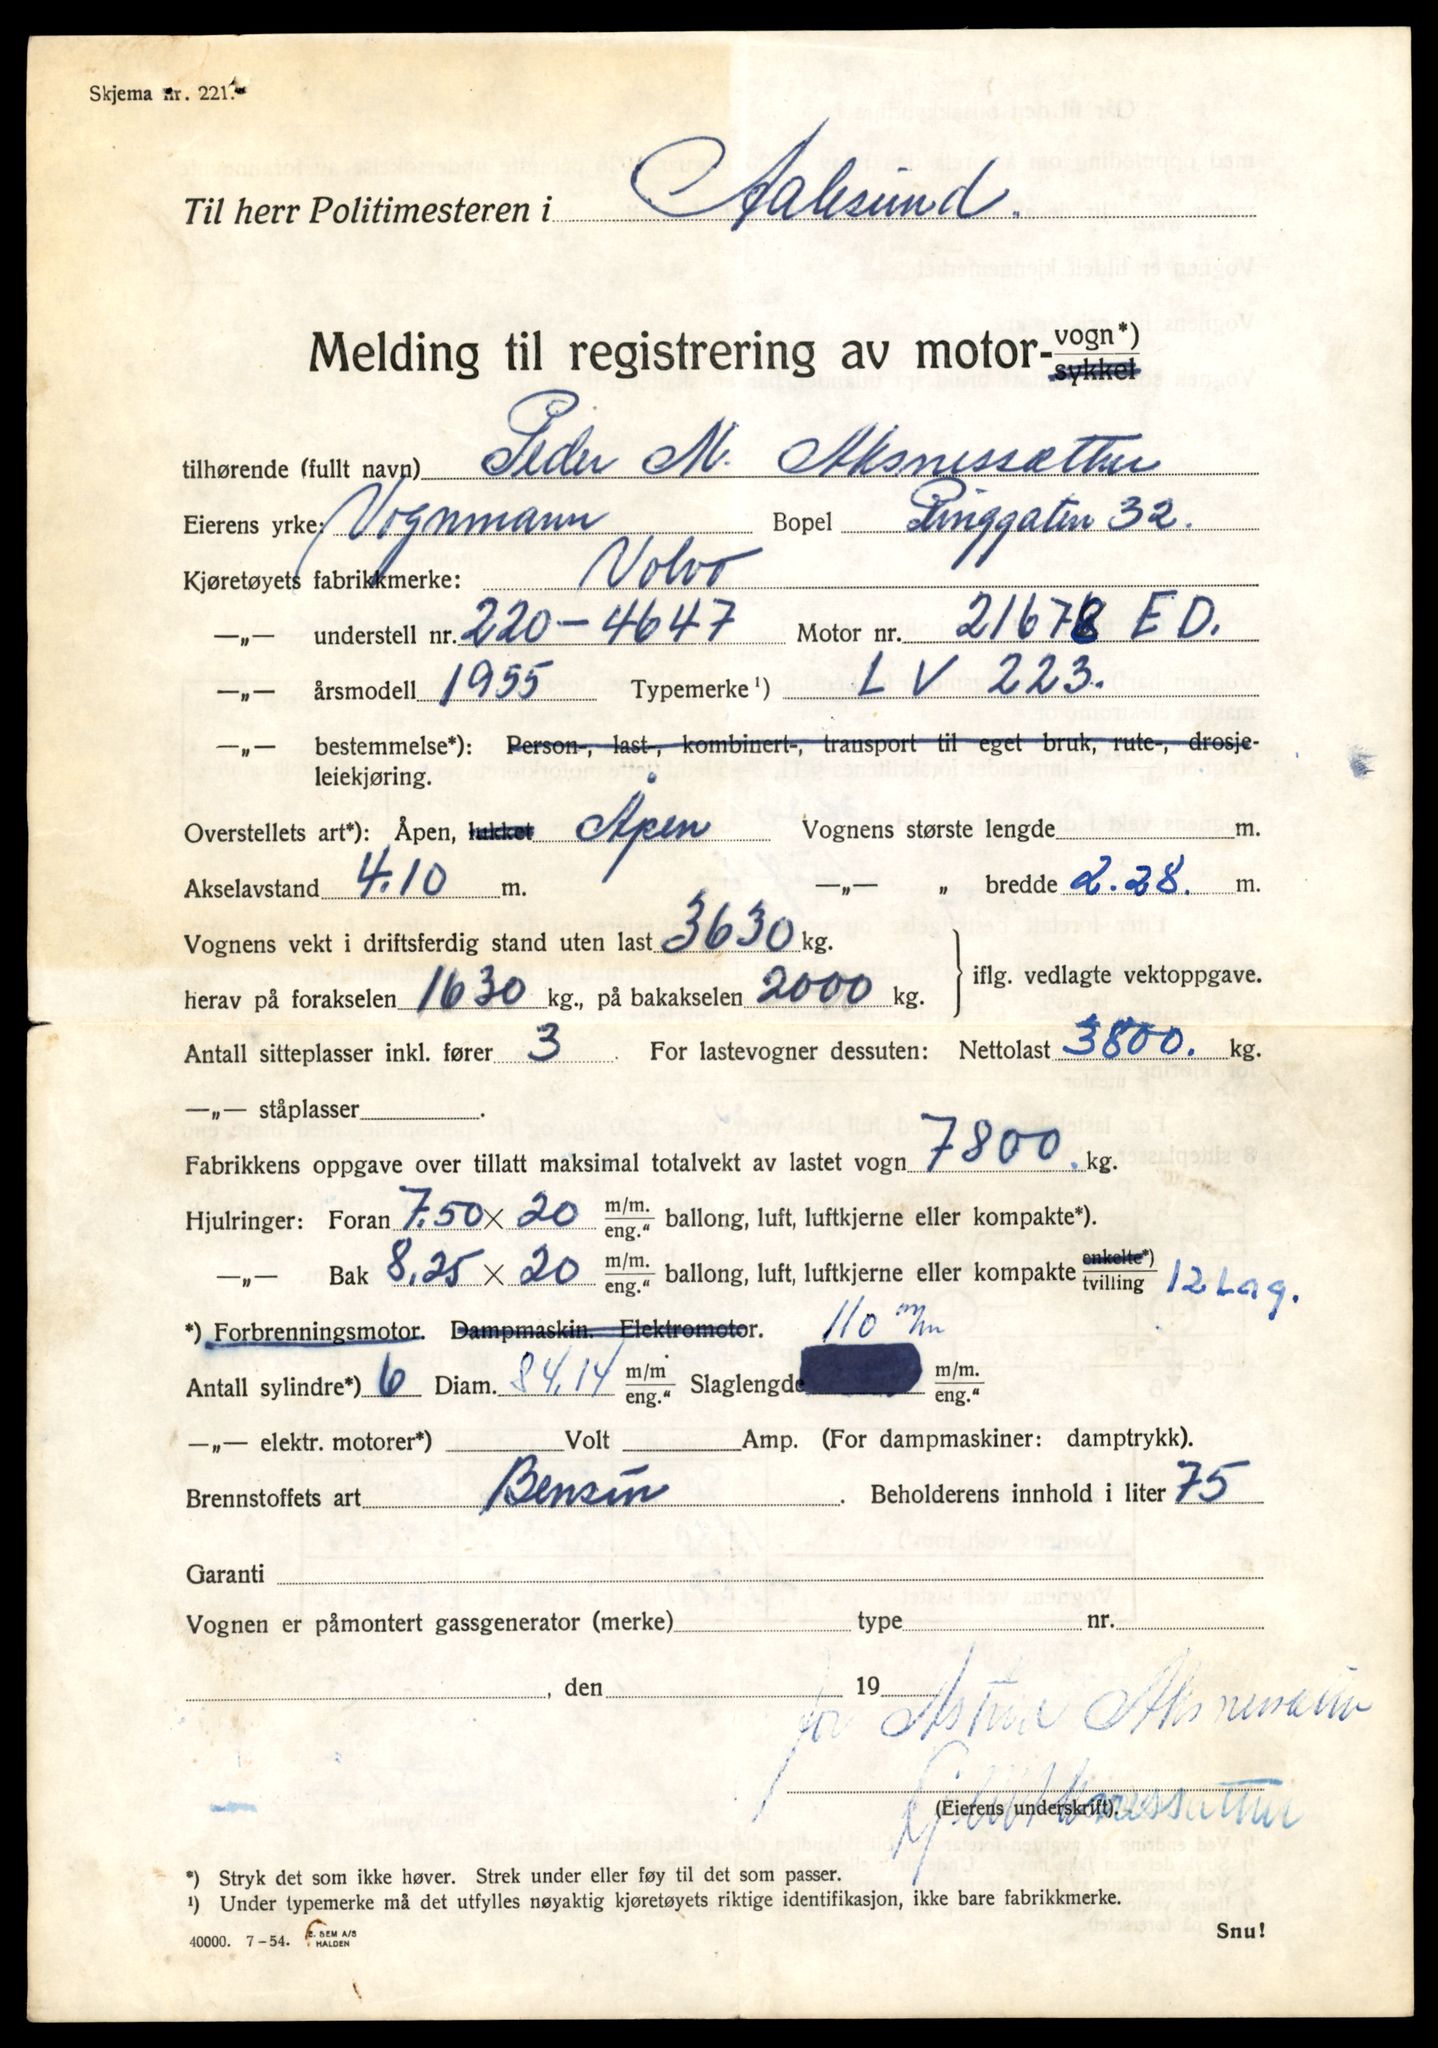 Skjema nr. 221.
Til herr Politimesteren i Aalesund.
Melding til registrering av motor-vogn*) sykkel
tilhørende (fullt navn) Peder M. Aksnessætter
Eierens yrke: Vognmann Bopel Ringgaten 32.
Kjøretøyets fabrikkmerke: Volvo
—„— understell nr. 220-4647 Motor nr. 21678 ED.
—„— årsmodell 1955 Typemerke ¹) LV 223.
—„— bestemmelse*): Person-, last-, kombinert-, transport til eget bruk, rute-, drosje-
leiekjøring.
Overstellets art*): Åpen, lukket Åpen Vognens største lengde m.
Akselavstand 4.10 m. —„— „ bredde 2.28. m.
Vognens vekt i driftsferdig stand uten last 3630 kg.
herav på forakselen 1630 kg., på bakakselen 2000 kg. } iflg. vedlagte vektoppgave.
Antall sitteplasser inkl. fører 3. For lastevogner dessuten: Nettolast 3800. kg.
—„— ståplasser .
Fabrikkens oppgave over tillatt maksimal totalvekt av lastet vogn 7800. kg.
Hjulringer: Foran 7.50 × 20 m/m. eng.“ ballong, luft, luftkjerne eller kompakte*).
—„— Bak 8.25 × 20 m/m. eng.“ ballong, luft, luftkjerne eller kompakte enkelte*) tvilling 12 Lag.
*) Forbrenningsmotor. Dampmaskin. Elektromotor. 110 m/m
Antall sylindre*) 6 Diam. 84,14 m/m eng.“ Slaglengde m/m. eng.“
—„— elektr. motorer*) Volt Amp. (For dampmaskiner: damptrykk).
Brennstoffets art Bensin . Beholderens innhold i liter 75
Garanti
Vognen er påmontert gassgenerator (merke) type nr.
, den 19
for Astrid Aksnessætter
(Eierens underskrift).
*) Stryk det som ikke høver. Strek under eller føy til det som passer.
¹) Under typemerke må det utfylles nøyaktig kjøretøyets riktige identifikasjon, ikke bare fabrikkmerke.
40000. 7-54. E. SEM A/S HALDEN
Snu!